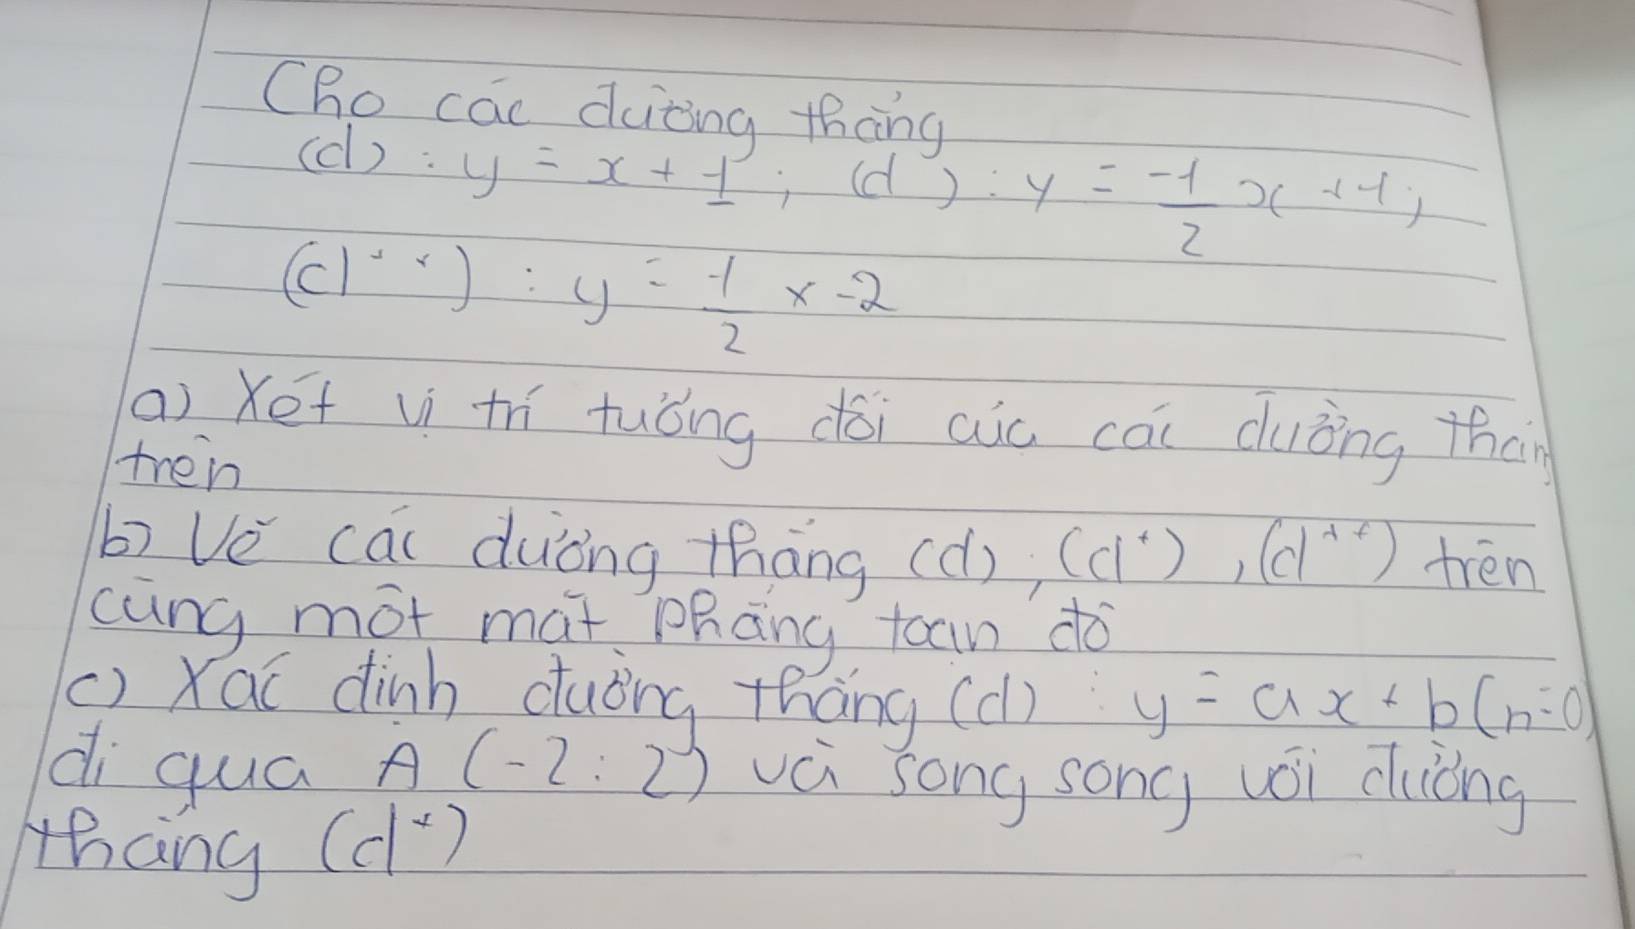 Cho các đường thẳng
(d) : y = x + 1 ; (d ) : y = -1/2 x + 1 ;
(d++) : y = -1/2 x - 2
a) Xét vị trí tương đối của các đường thẳn
trên
b) Vẽ các đường thẳng (d) ; (d+) , (d++) trên
cùng một mặt phẳng toạn đô
c) Xác định đường thẳng (d) : y = ax + b (n=0)
đi qua A (-2 : 2) và song song với đường
thẳng (d+)